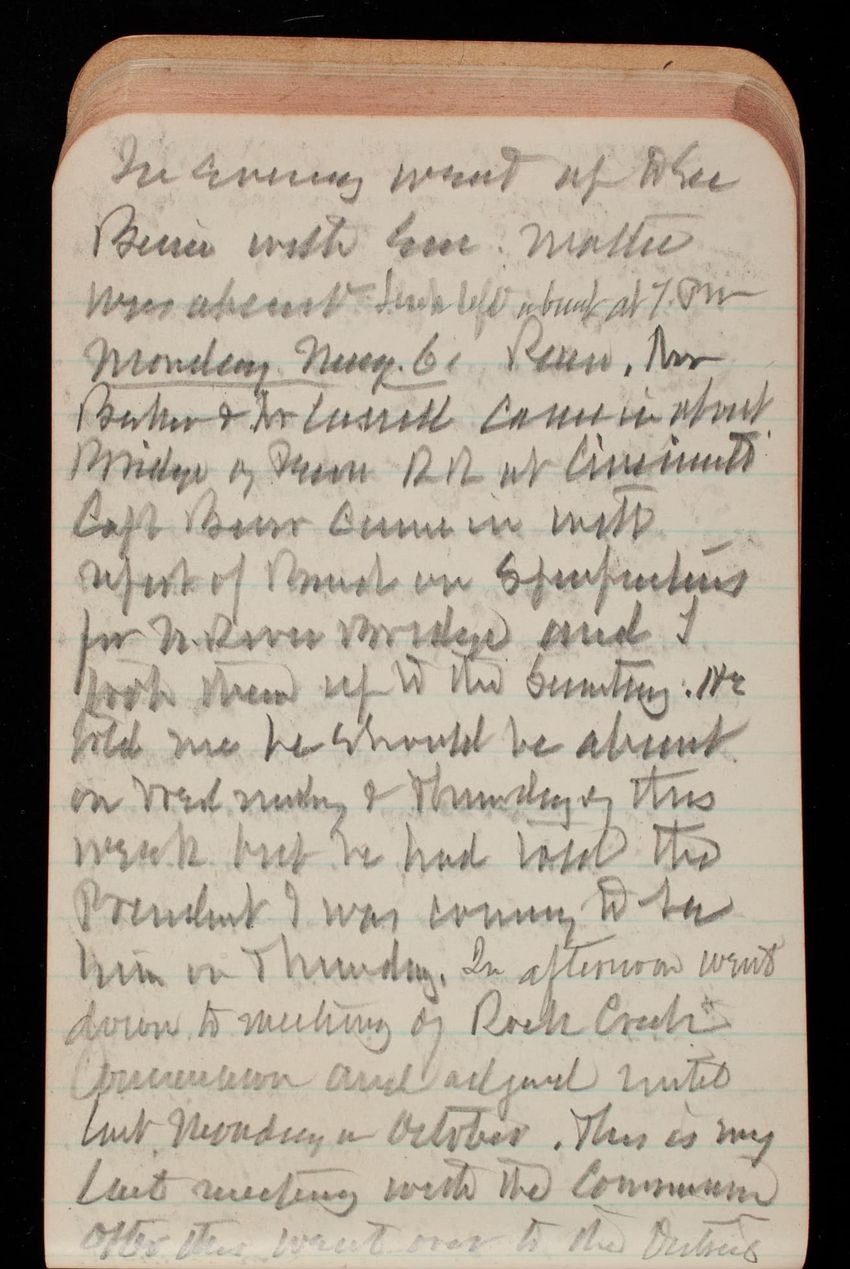 In evening went up to see
with Eva. Mattie
was absent. left about at 7 PM
Monday Aug. 6.
& came in about
Bridge of RR at Cincinnati
Capt came in with
report of Board on
for N. River Bridge and I
took them up to the Secretary. He
told me he should be absent
on Wednesday & Thursday of this
week but he had told the
President I was coming to see
him on Thursday. In afternoon went
down to meeting of Rock Creek
Commission and adjord until
last Monday in October. This is my
last meeting with the Commission
After this went over to the District